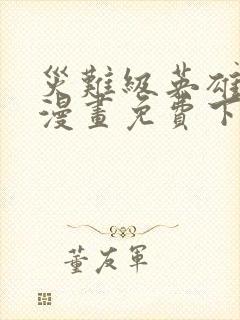 災難級英雄
漫畫免費下
董友軍